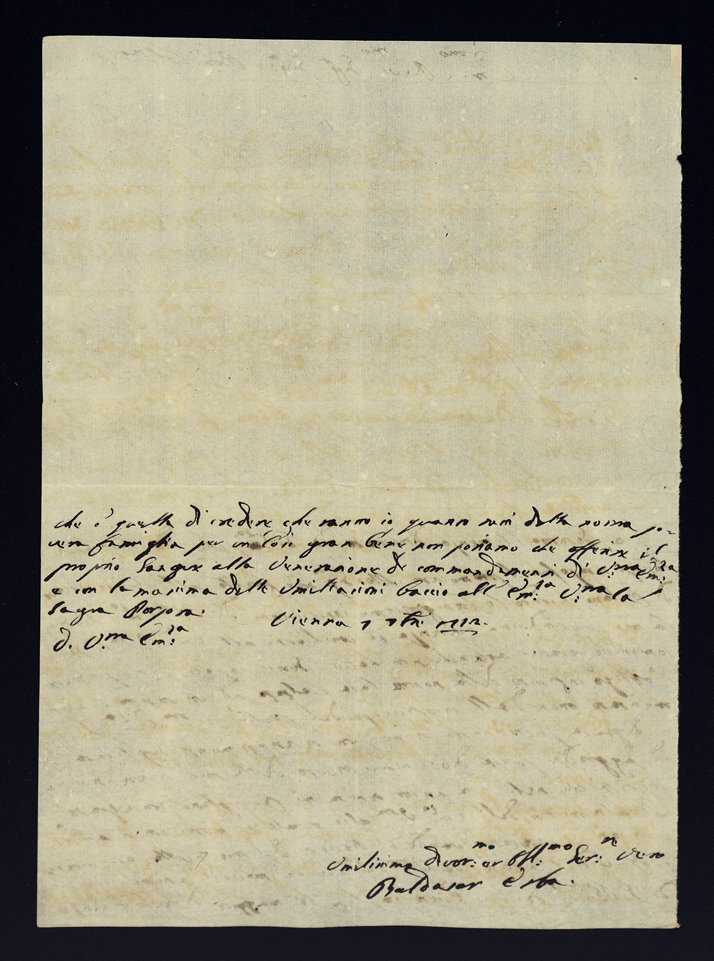 che è quella di credere che tanto io quanto tutti della nostra po-
vera famiglia per un così gran bene non possiamo che offerire il
proprio sangue alla Venerazione de commandamenti di V.ra Em.za
e con la massima delle Umiliazioni baccio all' Em.za V.ra la
Sagra Porpora.
Vienna 7 7bre 1712.
di V.ra Em.za
Umilissimo Devot.mo et Obl.mo Ser.re vero
Baldasar Erba.